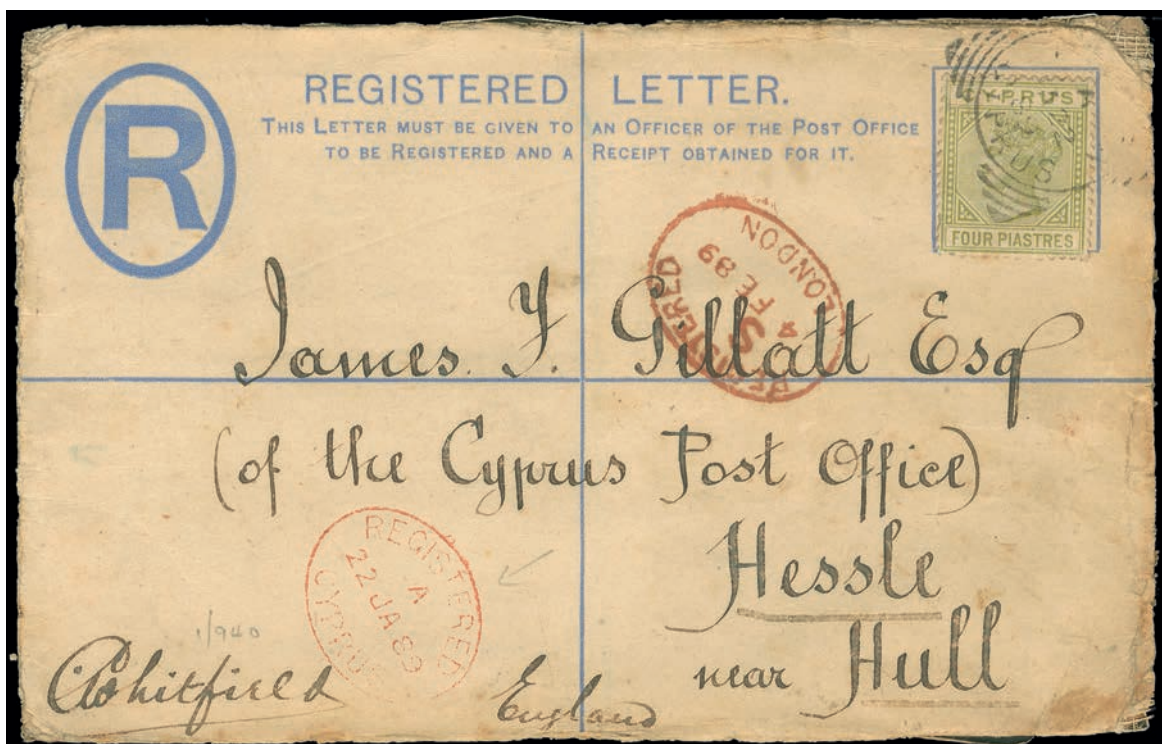 R
REGISTERED LETTER.
THIS LETTER MUST BE GIVEN TO AN OFFICER OF THE POST OFFICE
TO BE REGISTERED AND A RECEIPT OBTAINED FOR IT.
CYPRUS
FOUR PIASTRES
REGISTERED
LONDON
4 FE 89
S
James. F. Gillatt Esq
(of the Cyprus Post Office)
Hessle
near Hull
England
REGISTERED
A
22 JA 89
CYPRUS
1/940
Whitfield